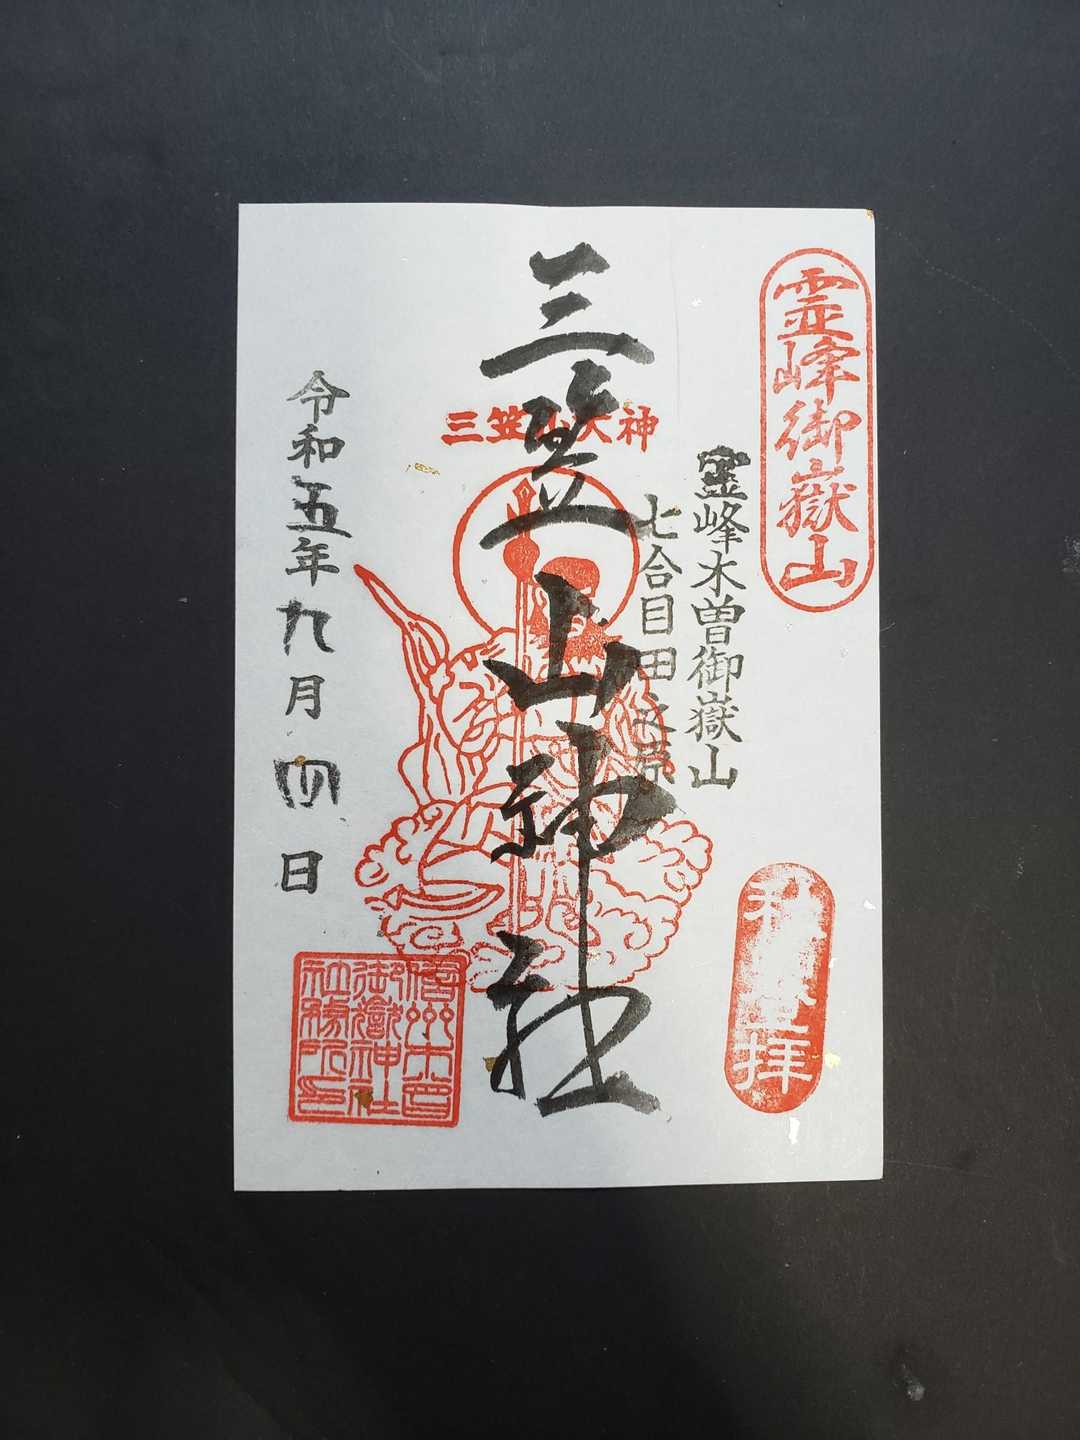 霊峰御嶽山
拝
霊峰木曽御嶽山
七合目田の原
三笠山大神
三笠山神社
令和五年九月四日
信州木曽
御嶽神社
社務所印